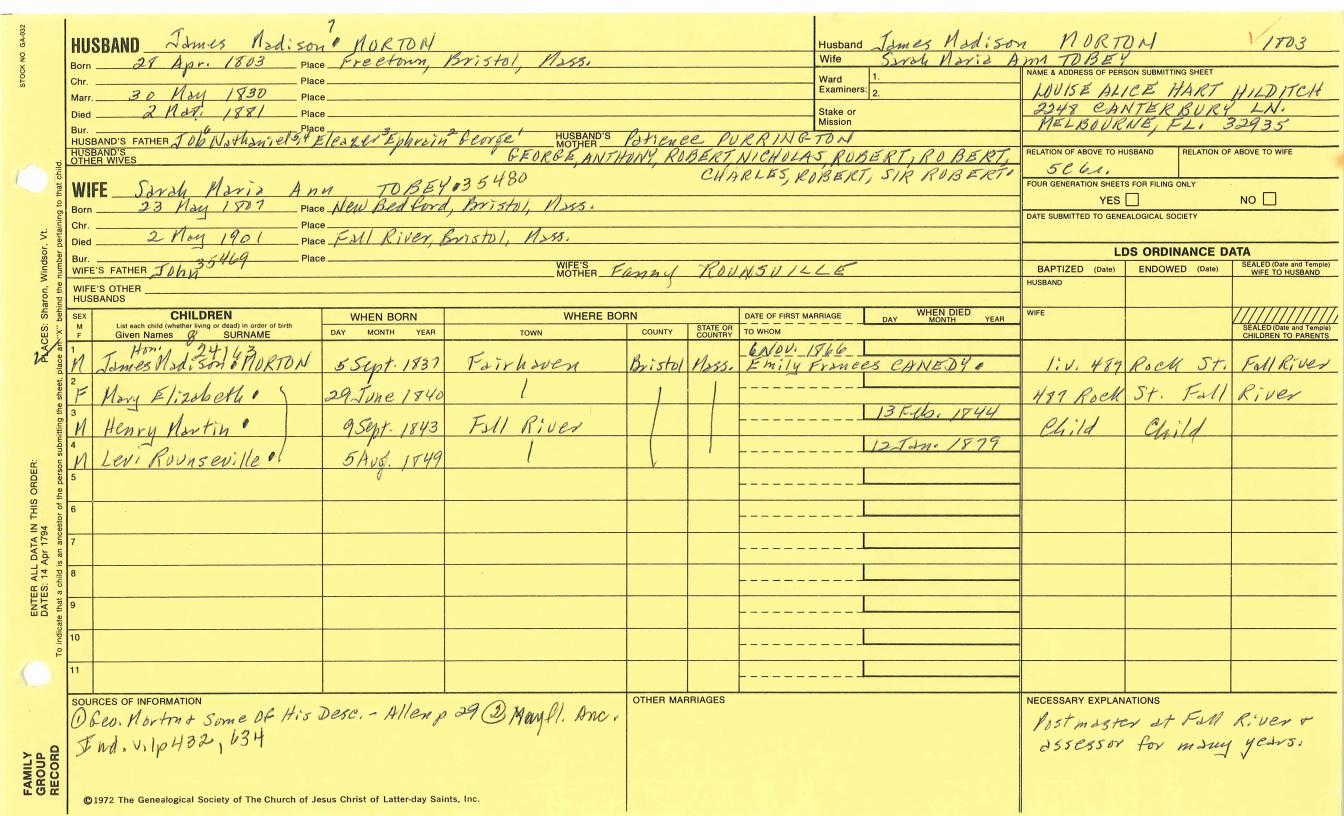 STOCK NO GA-032
7
HUSBAND James Madison MORTON
Born 28 Apr. 1803 Place Freetown, Bristol, Mass.
Chr. Place
Marr. 30 May 1830 Place
Died 2 Mar. 1881 Place
Bur. Place
HUSBAND'S FATHER Job 6 Nathaniel 5,4 Eleazer 3 Ephraim 2 George 1 HUSBAND'S MOTHER Patience PURRINGTON
HUSBAND'S OTHER WIVES GEORGE, ANTHONY, ROBERT NICHOLAS, ROBERT, ROBERT,
CHARLES, ROBERT, SIR ROBERT.
WIFE Sarah Maria Ann TOBEY 35480
Born 23 May 1807 Place New Bedford, Bristol, Mass.
Chr. Place
Died 2 May 1901 Place Fall River, Bristol, Mass.
Bur. Place
WIFE'S FATHER John 35469 WIFE'S MOTHER Fanny ROUNSVILLE
WIFE'S OTHER HUSBANDS
Husband James Madison MORTON 1803
Wife Sarah Maria Ann TOBEY
Ward Examiners: 1.
2.
Stake or Mission
NAME & ADDRESS OF PERSON SUBMITTING SHEET
LOUISE ALICE HART HILDITCH
2248 CANTERBURY LN.
MELBOURNE, FL. 32935
RELATION OF ABOVE TO HUSBAND RELATION OF ABOVE TO WIFE
FOUR GENERATION SHEETS FOR FILING ONLY
YES NO
DATE SUBMITTED TO GENEALOGICAL SOCIETY
LDS ORDINANCE DATA
BAPTIZED (Date) ENDOWED (Date) SEALED (Date and Temple) WIFE TO HUSBAND
HUSBAND
WIFE
SEALED (Date and Temple) CHILDREN TO PARENTS
SEX M F CHILDREN WHEN BORN WHERE BORN DATE OF FIRST MARRIAGE WHEN DIED
List each child (whether living or dead) in order of birth
Given Names SURNAME DAY MONTH YEAR TOWN COUNTY STATE OR COUNTRY TO WHOM DAY MONTH YEAR
Hon. 8 24163 6 Nov. 1866
1 M James Madison MORTON 5 Sept. 1837 Fairhaven Bristol Mass. Emily Frances CANEDY. liv. 487 Rock St. Fall River
2 F Mary Elizabeth 29 June 1840 487 Rock St. Fall River
3 M Henry Martin 9 Sept. 1843 Fall River 13 Feb. 1844 Child Child
4 M Levi Rounseville 5 Aug. 1849 12 Jan. 1879
5
6
7
8
9
10
11
SOURCES OF INFORMATION
① Geo. Morton & Some Of His Desc. - Allen p 29 ② Mayfl. Anc.
Ind. v.1 p432, 634
OTHER MARRIAGES
NECESSARY EXPLANATIONS
Postmaster at Fall River &
assessor for many years.
©1972 The Genealogical Society of The Church of Jesus Christ of Latter-day Saints, Inc.
FAMILY GROUP RECORD
ENTER ALL DATA IN THIS ORDER:
DATES: 14 Apr 1794
PLACES: Sharon, Windsor, Vt.
To indicate that a child is an ancestor of the person submitting the sheet, place an "X" behind the number pertaining to that child.